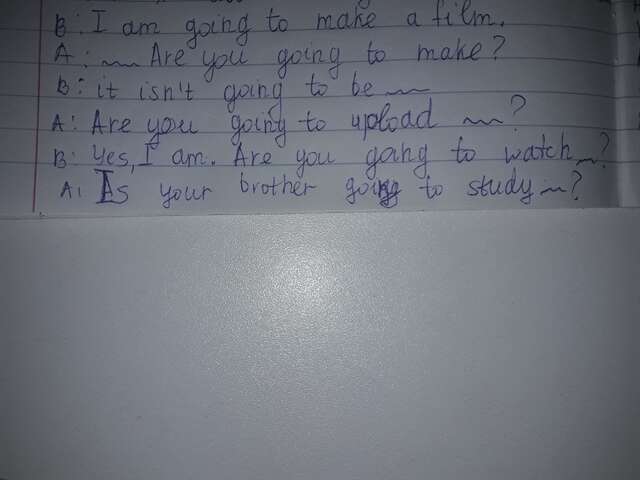 B: I am going to make a film.
A: ~~ Are you going to make?
B: it isn't going to be ~~
A: Are you going to upload ~~?
B: Yes, I am. Are you going to watch ~~?
A: Is your brother going to study ~~?